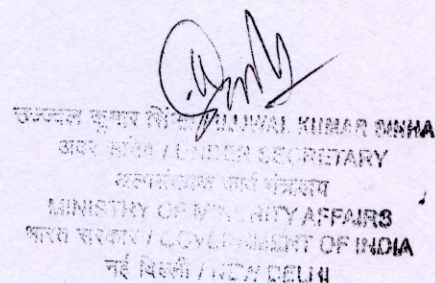 उज्ज्वल कुमार सिन्हा/UJJWAL KUMAR SINHA
अवर सचिव / UNDER SECRETARY
अल्पसंख्यक कार्य मंत्रालय
MINISTRY OF MINORITY AFFAIRS
भारत सरकार / GOVERNMENT OF INDIA
नई दिल्ली / NEW DELHI